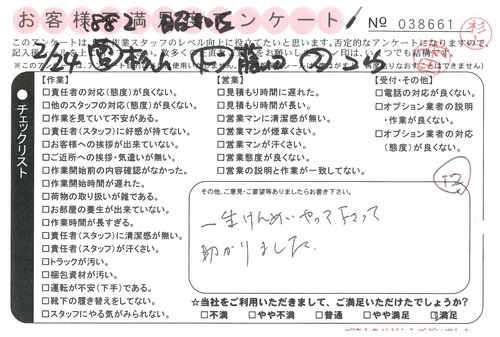 お客様満足度アンケート
882
No 038661
このアンケートは、作業スタッフのレベル向上に役立てたいと思います。否定的なアンケートになりますので、
2/24
【作業】
□責任者の対応(態度)が良くない。
□他のスタッフの対応(態度)が良くない。
□作業を見ていて不安がある。
□責任者(スタッフ)に好感が持てない。
□お客様への挨拶が出来ていない。
□ご近所への挨拶・気遣いが無い。
□作業開始前の内容確認がなかった。
□作業開始時間が遅れた。
□荷物の取り扱いが雑である。
□お部屋の養生が出来ていない。
□作業時間が長すぎる。
□責任者(スタッフ)に清潔感が無い。
□責任者(スタッフ)が汗くさい。
□トラックが汚い。
□梱包資材が汚い。
□運転が不安(下手)である。
□靴下の履き替えをしてない。
□スタッフにやる気がみられない。
【営業】
□見積もり時間に遅れた。
□見積もり時間が長い。
□営業マンに清潔感が無い。
□営業マンが煙草くさい。
□営業マンが汗くさい。
□営業態度が良くない。
□営業の説明と作業が一致してない。
【受付・その他】
□電話の対応が良くない。
□オプション業者の説明
・作業が良くない。
□オプション業者の対応
(態度)が良くない。
チェックリスト
その他、ご意見・ご要望等ありましたらお書き下さい。
一生けんめいやって下さって
助かりました。
☆当社をご利用いただきまして、ご満足いただけたでしょうか?
□不満 □やや不満 □普通 □やや満足 □満足